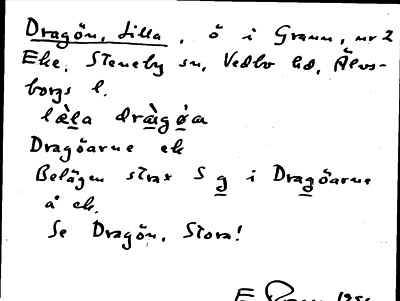 Dragön, Lilla, ö i Grann, nr 2
Eke, Steneby sn, Vedbo hd, Älvs-
borgs l.
læ̀la dràgø̀a
Dragöarne ek
Belägen strax S g i Dragöarne
å ek.
Se Dragön, Stora!
E